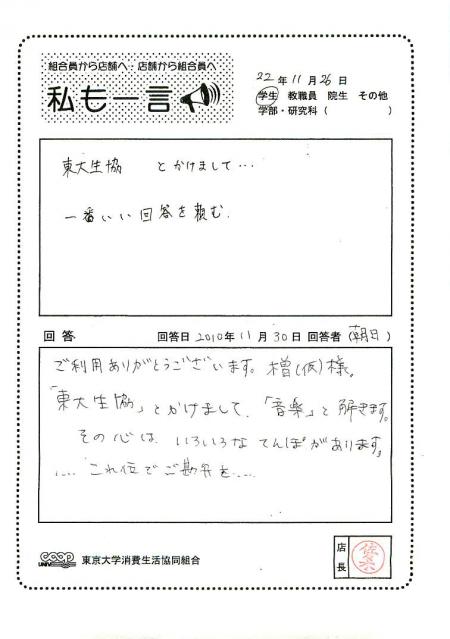 組合員から店舗へ・店舗から組合員へ
私も一言
22年11月26日
学生 教職員 院生 その他
学部・研究科( )
東大生協 とかけまして…
一番いい回答を頼む.
回答 回答日 2010年11月30日 回答者(朝日)
ご利用ありがとうございます。 樽(仮)様。
「東大生協」とかけまして、「音楽」と解きます。
その心は いろいろな てんぽがあります。
.... これ位でご勘弁を....
UNIV CO-OP 東京大学消費生活協同組合
店長